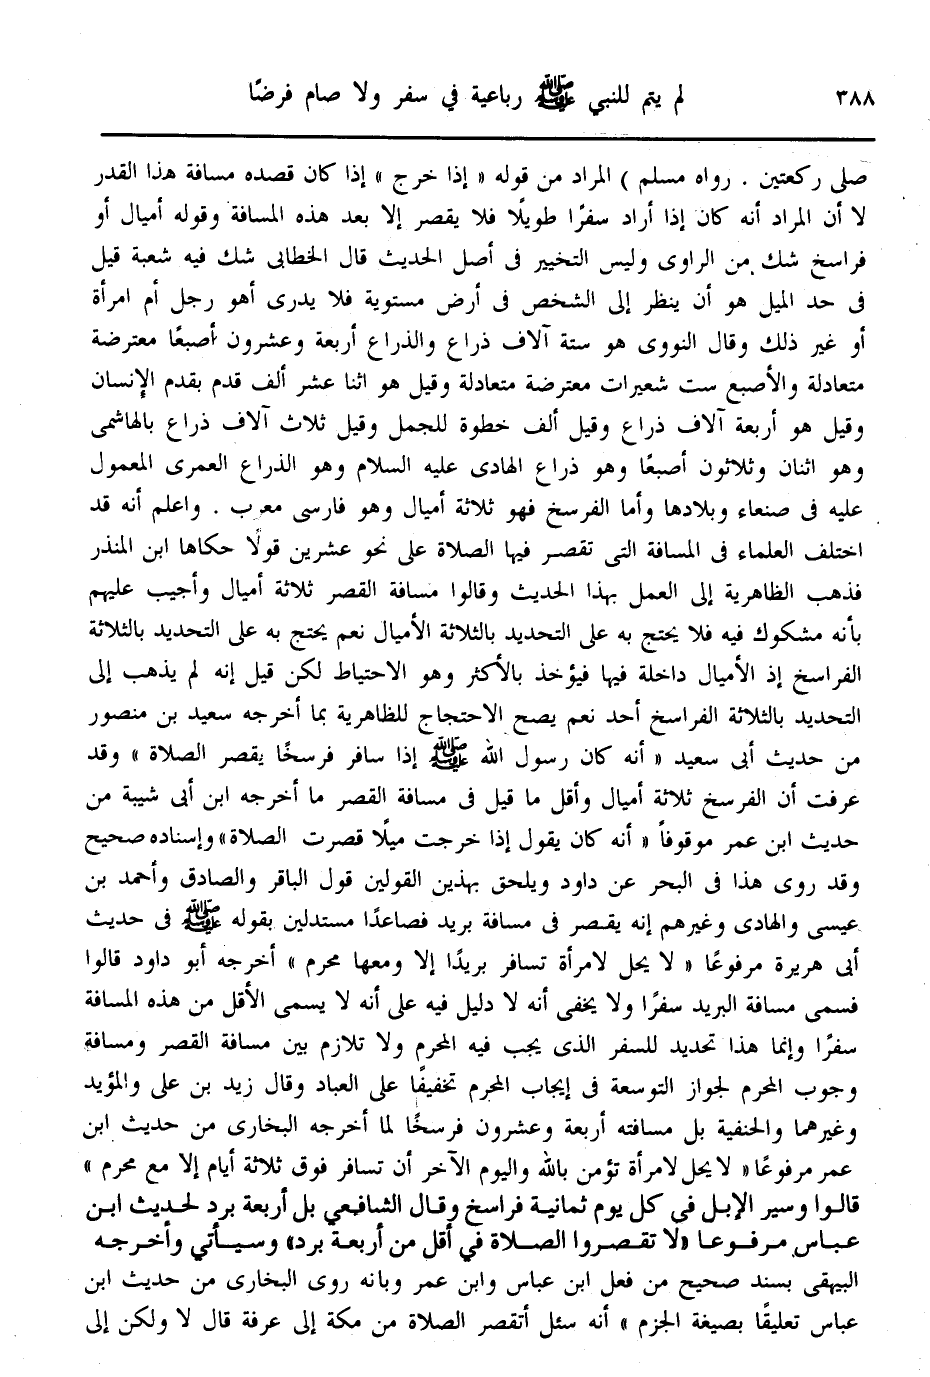 ٣٨٨ لم يتم للنبي ﷺ رباعية في سفر ولا صام فرضًا
صلى ركعتين . رواه مسلم ) المراد من قوله « إذا خرج » إذا كان قصده مسافة هذا القدر
لا أن المراد أنه كان إذا أراد سفرًا طويلًا فلا يقصر إلا بعد هذه المسافة وقوله أميال أو
فراسخ شك من الراوى وليس التخيير فى أصل الحديث قال الخطابى شك فيه شعبة قيل
فى حد الميل هو أن ينظر إلى الشخص فى أرض مستوية فلا يدرى أهو رجل أم امرأة
أو غير ذلك وقال النووى هو ستة آلاف ذراع والذراع أربعة وعشرون أصبعًا معترضة
متعادلة والأصبع ست شعيرات معترضة متعادلة وقيل هو اثنا عشر ألف قدم بقدم الإنسان
وقيل هو أربعة آلاف ذراع وقيل ألف خطوة للجمل وقيل ثلاث آلاف ذراع بالهاشمى
وهو اثنان وثلاثون أصبعًا وهو ذراع الهادى عليه السلام وهو الذراع العمرى المعمول
عليه فى صنعاء وبلادها وأما الفرسخ فهو ثلاثة أميال وهو فارسى معرب . واعلم أنه قد
اختلف العلماء فى المسافة التى تقصر فيها الصلاة على نحو عشرين قولًا حكاها ابن المنذر
فذهب الظاهرية إلى العمل بهذا الحديث وقالوا مسافة القصر ثلاثة أميال وأجيب عليهم
بأنه مشكوك فيه فلا يحتج به على التحديد بالثلاثة الأميال نعم يحتج به على التحديد بالثلاثة
الفراسخ إذ الأميال داخلة فيها فيؤخذ بالأكثر وهو الاحتياط لكن قيل إنه لم يذهب إلى
التحديد بالثلاثة الفراسخ أحد نعم يصح الاحتجاج للظاهرية بما أخرجه سعيد بن منصور
من حديث أبى سعيد « أنه كان رسول الله ﷺ إذا سافر فرسخًا يقصر الصلاة » وقد
عرفت أن الفرسخ ثلاثة أميال وأقل ما قيل فى مسافة القصر ما أخرجه ابن أبى شيبة من
حديث ابن عمر موقوفاً « أنه كان يقول إذا خرجت ميلًا قصرت الصلاة» وإسناده صحيح
وقد روى هذا فى البحر عن داود ويلحق بهذين القولين قول الباقر والصادق وأحمد بن
عيسى والهادى وغيرهم إنه يقصر فى مسافة بريد فصاعدًا مستدلين بقوله ﷺ فى حديث
أبى هريرة مرفوعًا « لا يحل لامرأة تسافر بريدًا إلا ومعها محرم » أخرجه أبو داود قالوا
فسمى مسافة البريد سفرًا ولا يخفى أنه لا دليل فيه على أنه لا يسمى الأقل من هذه المسافة
سفرًا وإنما هذا تحديد للسفر الذى يجب فيه المحرم ولا تلازم بين مسافة القصر ومسافة
وجوب المحرم لجواز التوسعة فى إيجاب المحرم تخفيفًا على العباد وقال زيد بن على والمؤيد
وغيرهما والحنفية بل مسافته أربعة وعشرون فرسخًا لما أخرجه البخارى من حديث ابن
عمر مرفوعًا« لا يحل لامرأة تؤمن بالله واليوم الآخر أن تسافر فوق ثلاثة أيام إلا مع محرم »
قالوا وسير الإبل في كل يوم ثمانية فراسخ وقال الشافعي بل أربعة برد لحديث ابن
عباس مرفوعا «لا تقصروا الصلاة في أقل من أربعة برد» وسيأتي وأخرجه
البيهقى بسند صحيح من فعل ابن عباس وابن عمر وبانه روى البخارى من حديث ابن
عباس تعليقًا بصيغة الجزم » أنه سئل أتقصر الصلاة من مكة إلى عرفة قال لا ولكن إلى